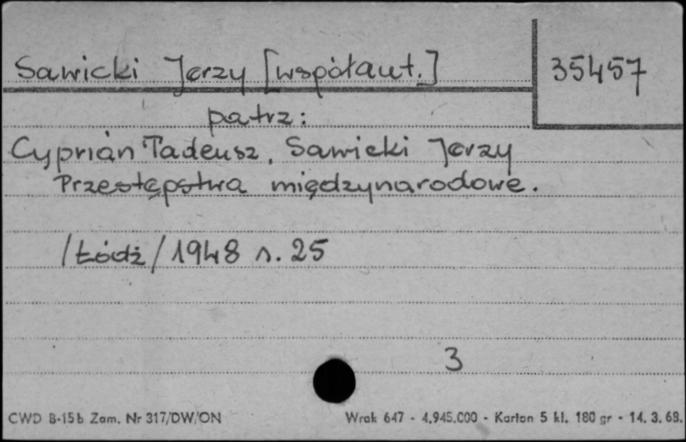 Sawicki Jerzy [współaut.]
35457
patrz:
Cyprian Tadeusz, Sawicki Jerzy
Przestępstwa międzynarodowe.
/Łódź/ 1948 s. 25
3
CWD B-15b Zam. Nr 317/DW/ON
Wrak 647 - 4.945.000 - Karton 5 kl. 180 gr - 14. 3. 68.